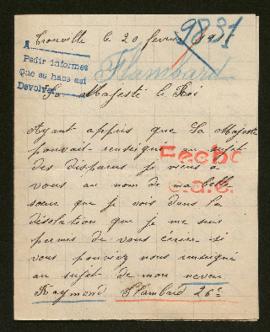 Trouville le 20 février
9831
A
Pedir informes
Que se haga así
Devolver
Flambard
Sa Majesté le Roi
Ayant appris que Sa Majesté
pouvait renseigner au sujet
des disparus je viens à
vous au nom de ma belle
sœur que je vois dans la
désolation que je me suis
permis de vous écrire si
vous pouviez nous renseigné
au sujet de mon neveu
Raymond Flambard 26e
Fecho